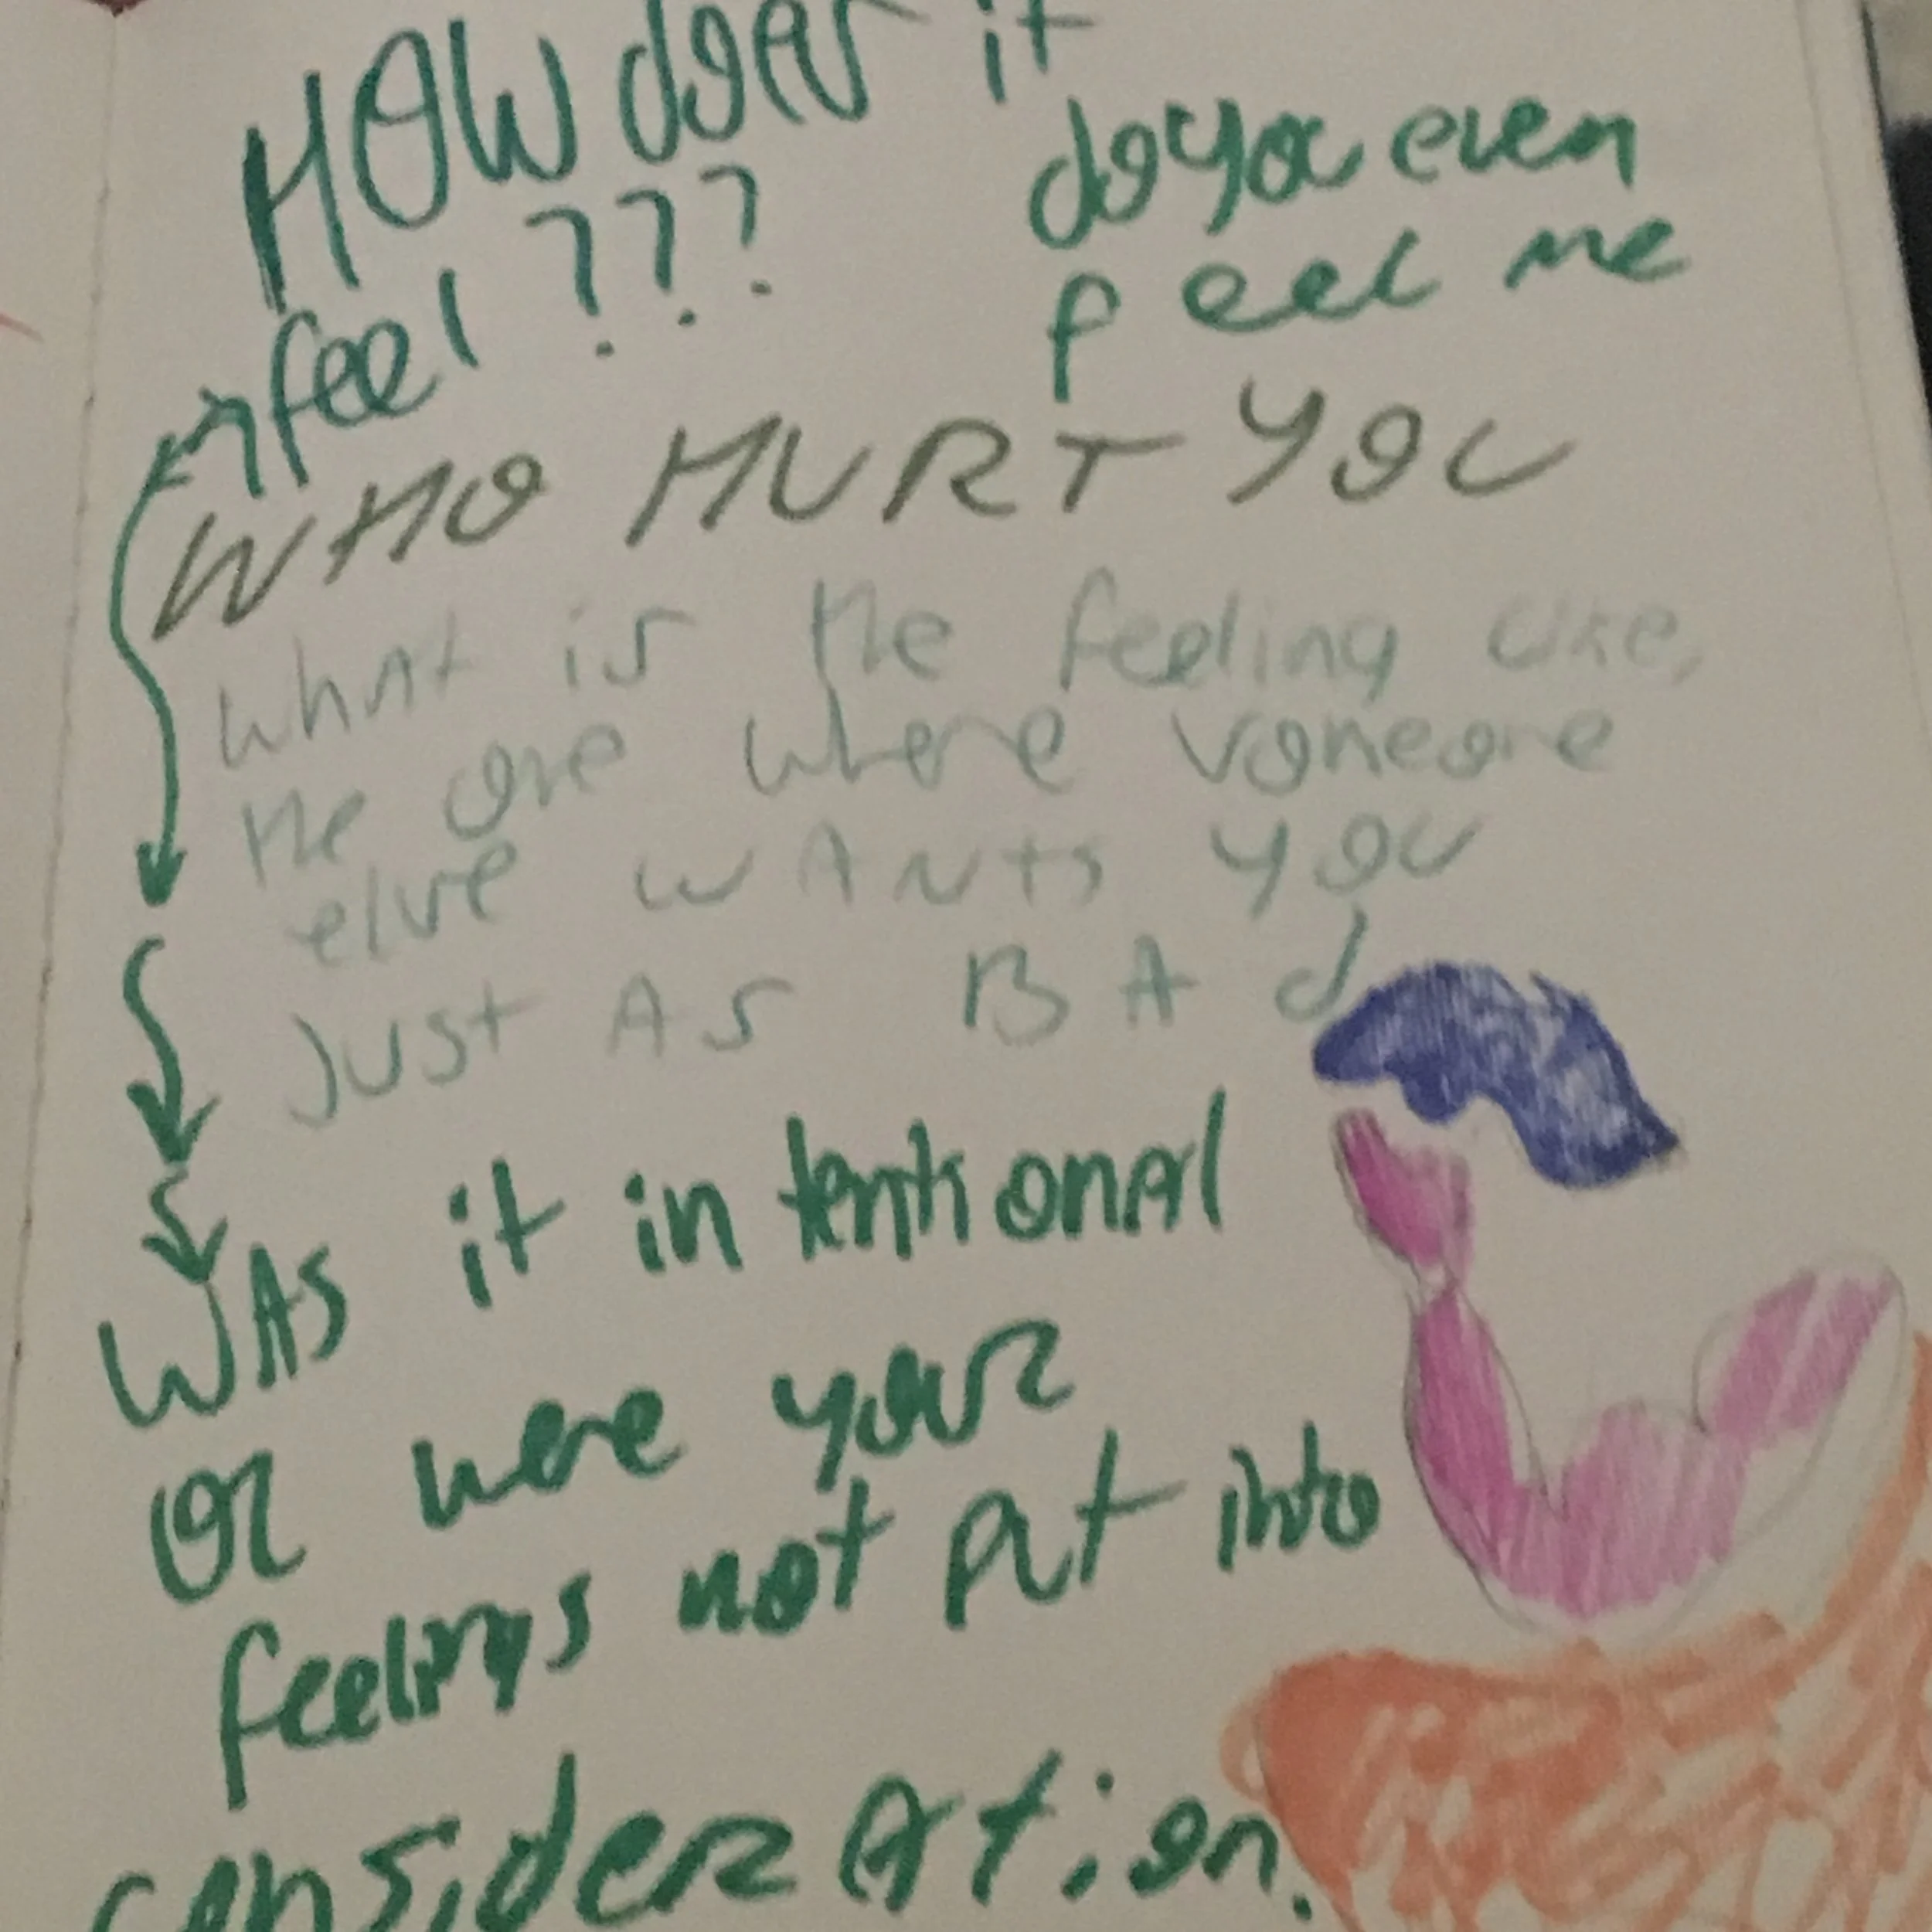 HOW does it
feel ???
do you even
feel me
WHO HURT YOU
what is the feeling like,
the one where someone
else wANts you
just As BAd
WAS it intentional
OR were youR
feelings not put into
consideRAtion.